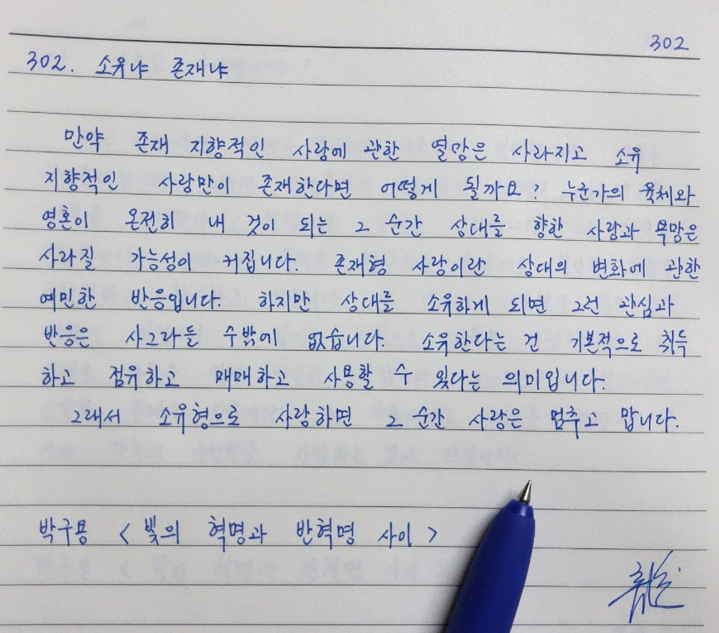 302
302. 소유냐 존재냐
만약 존재 지향적인 사랑에 관한 열망은 사라지고 소유
지향적인 사랑만이 존재한다면 어떻게 될까요? 누군가의 육체와
영혼이 온전히 내 것이 되는 그 순간 상대를 향한 사랑과 욕망은
사라질 가능성이 커집니다. 존재형 사랑이란 상대의 변화에 관한
예민한 반응입니다. 하지만 상대를 소유하게 되면 그런 관심과
반응은 사그라들 수밖에 없습니다. 소유한다는 건 기본적으로 취득
하고 점유하고 매매하고 사용할 수 있다는 의미입니다.
그래서 소유형으로 사랑하면 그 순간 사랑은 멈추고 맙니다.
박구용 < 빛의 혁명과 반혁명 사이 >